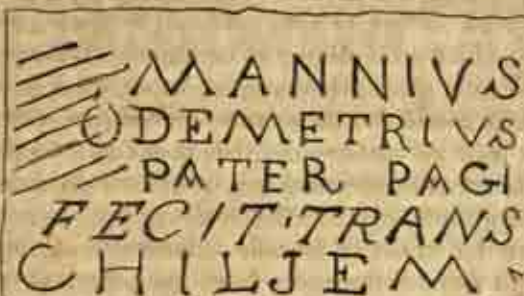 MANNIVS
ODEMETRIVS
PATER PAGI
FECIT·TRANS
CHILJEM